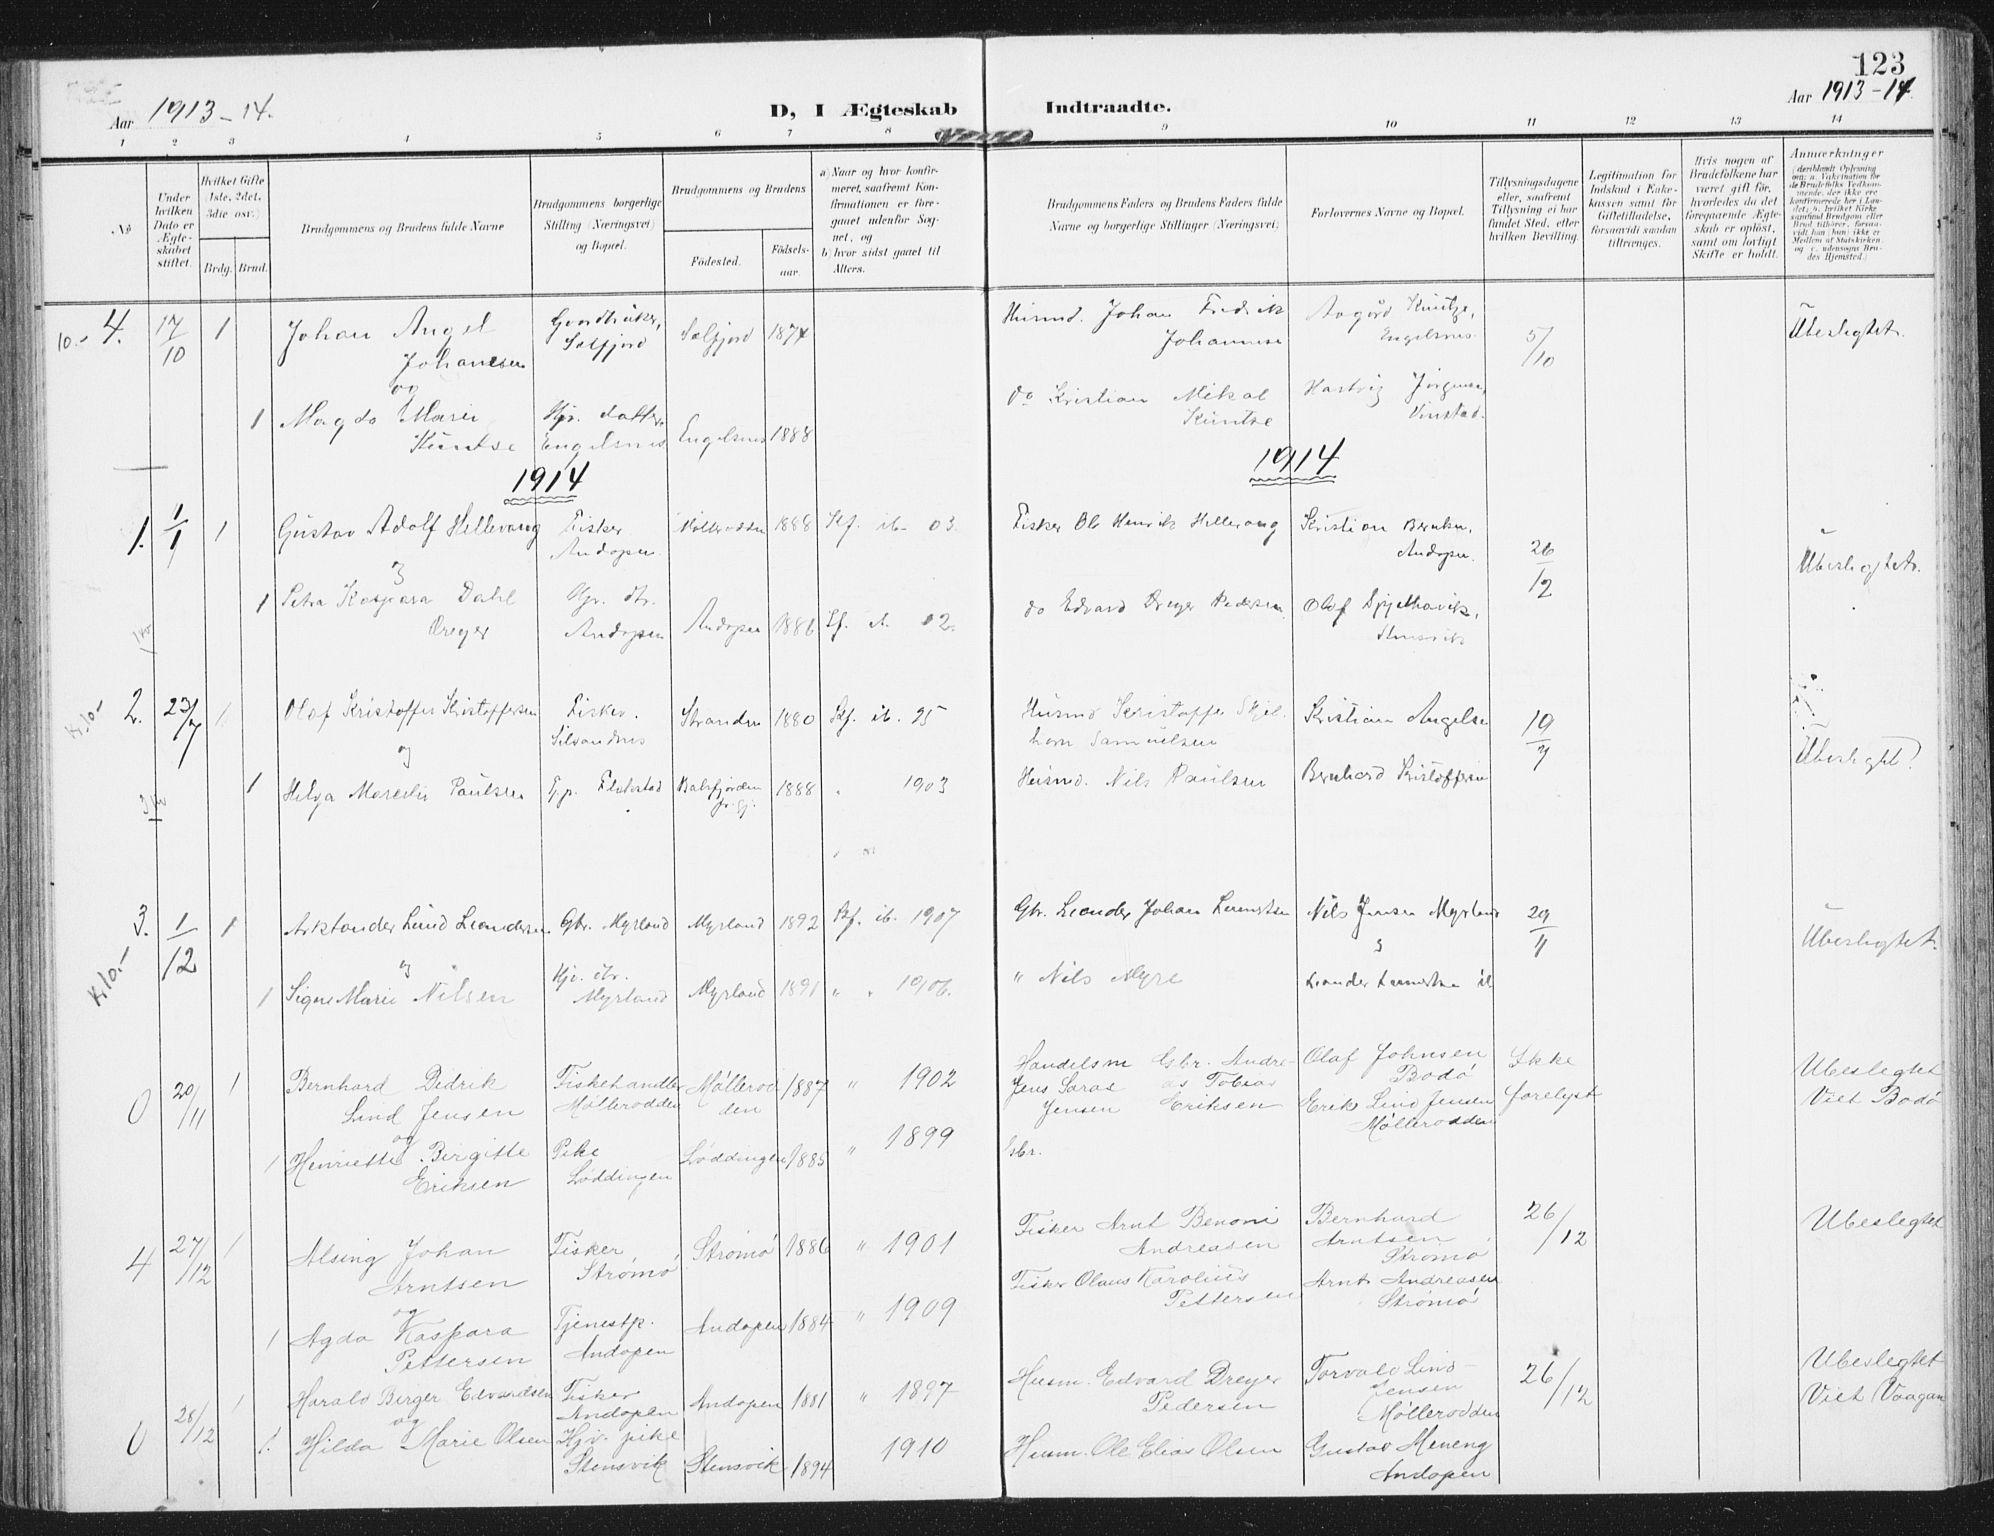 123
Aar 1913-14.
D, I Ægteskab Indtraadte.
Aar 1913-14.
1 2 3 4 5 6 7 8 9 10 11 12 13 14
No
Under hvilken Dato er Ægteskabet stiftet.
Hvilket Gifte (1ste, 2det, 3die osv.)
Brdg. Brud.
Brudgommens og Brudens fulde Navne
Brudgommens borgerlige Stilling (Næringsvei) og Bopæl.
Brudgommens og Brudens
Fødested.
Fødselsaar.
a) Naar og hvor konfirmeret, saafremt Konfirmationen er foregaaet udenfor Sognet, og
b) hvor sidst gaaet til Alters.
Brudgommens Faders og Brudens Faders fulde Navne og borgerlige Stillinger (Næringsvei)
Forlovernes Navne og Bopæl.
Tillysningsdagene eller, saafremt Tillysning ei har fundet Sted, efter hvilken Bevilling.
Legitimation for Indskud i Enkekassen samt for Giftetilladelse, forsaavidt saadan tiltrænges.
Hvis nogen af Brudefolkene har været gift før, hvorledes da det foregaaende Ægteskab er opløst, samt om lovligt Skifte er holdt.
Anmærkninger
10.- 4. 17/10 1 Johan Angel Johansen Gaardbruker, Selfjord Selfjord 1874 Husmd. Johan Fredrik Johannesen Aagård Kuntze, Engelsnes 5/10 Ubeslegtet.
og
1 Magda Marie Kuntse Hjv. datter Engelsnes Engelsnes 1888 do Kristian Mikal Kuntze Hartvig Jörgensen, Vinstad.
1914 1914
1. 1/1 1 Gustav Adolf Hellevang Fisker Andopen. Mølleodden 1888 Kf. ib. 03. Fisker Ole Henrik Hellevang Kristian Berntsen, Andopen. 26/12 Ubeslegtet.
1 Petra Kaspara Dahl Dreyer Hjv. dtr. Andopen Andopen 1886 Kf. ib. 02. do Edvard Dreyer Pedersen Olaf
2. 23/7 1. Olaf Kristoffer Kristoffersen Fisker. Stranden 1880 Kf. ib. 95 Husmd Kristoffer Samuelsen Kristian Angelsen 19/7 Ubeslegtet.
Kr. 10.-
og
1 Helga Marelie Paulsen Tjp. Flakstad Balsfjorden 1888 " 1903 Husmd. Nils Paulsen Bernhard Kristoffersen
3. 1/12 1 Arktander Lund Leandersen Gbr. Myrland Myrland 1892 Kf. ib. 1907 Gbr. Leander Johan Lerentsen Nils Jensen Myrland 29/11 Ubeslegtet.
Kr. 10.-
1 Signe Marie Nilsen Hjv. dtr. Myrland Myrland 1891 " " 1906. " Nils Myre Leander Lerentsen ib
0 20/11 1 Bernhard Didrik Lind Jensen Fiskehandler Mølleodden Mølleodden 1887 " 1902 Handelsm Jens Saras Jensen Gbr. Andreas Tobias Eriksen Olaf Johnsen Bodø Ikke forelyst Ubeslegtet Viet Bodø
og
1 Henriette Birgitte Eriksen Pike Løddingen Løddingen 1885 " 1899 Gbr. Erik Lind Jensen Mølleodden
4 27/12 1 Alsing Johan Arntsen Fisker Strømø Strømø 1886 " 1901 Fisker Arnt Benoni Andreasen Bernhard Arntsen Strømø 26/12 Ubeslegtet
og
1 Agda Kaspara Pettersen Tjenestp. Andopen Andopen 1884 " 1909 Fisker Olaus Karolius Pettersen Arnt Andreasen Strømø
0 28/12 1 Harald Birger Edvardsen Fisker Andopen Andopen 1881 " 1897 Husm. Edvard Dreyer Pedersen Torvald Lind-Jensen Mølleodden 26/12 Ubeslegtet Viet Vaagan
og
1. Hilda Marie Olsen Hjv. pike Stensvik Stensvik 1894 1910 Husm. Ole Elias Olsen Gustav Meneng Andopen